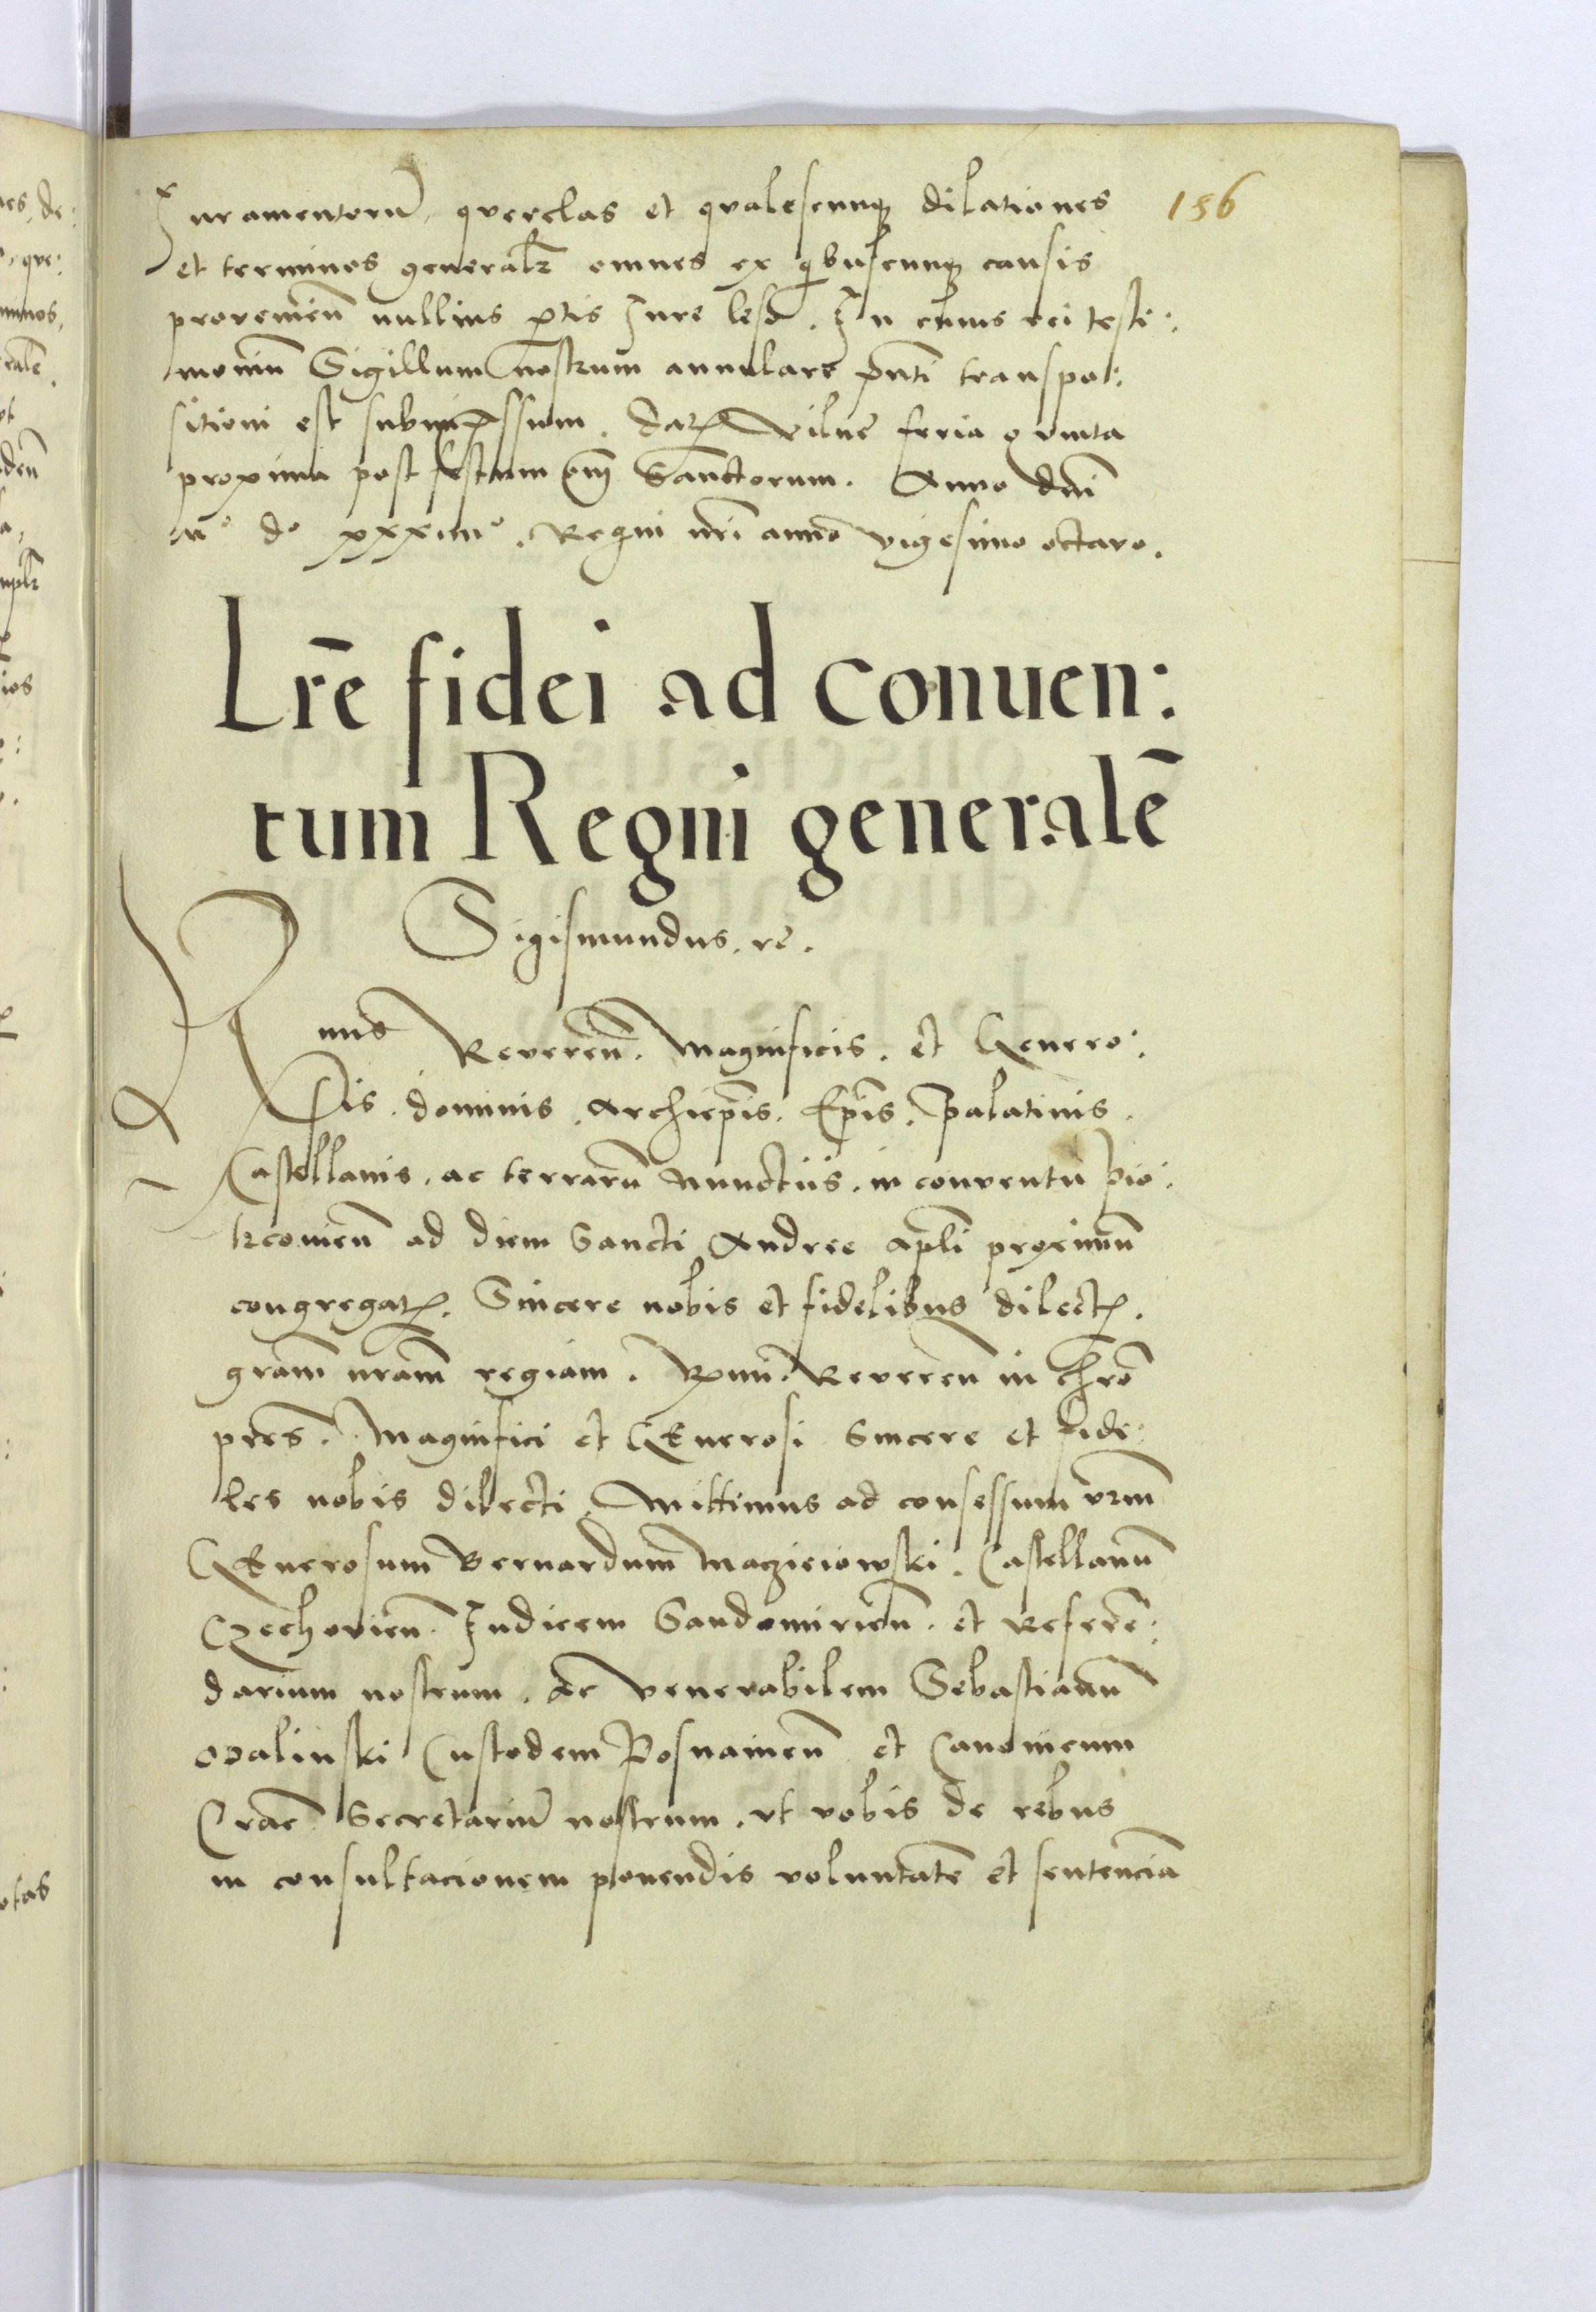 156
Juramentorū, querelas et qualescunq; dilationes
et terminos generalr̄ omnes ex qibuscunq; causis
provenien̄ nullius ptis Jure leso. In cuius rei testi:
moniū Sigillum nostrum annulare pn̄ti transpo:
sitioni est subimpssum. Dat Vilne feria quinta
proxima post festum om̄ Sanctorum. Anno dn̄i
Mº dº xxxiiiiº. Regni nr̄i anno vigesimo octavo.
Lr̄e fidei ad Conuen:
tum Regni generalē
Sigismundus. rē.
Rmis Reveren̄. Magnificis. et Genero:
sis. dominis. Archiep̄is. Ep̄is. Palatinis.
Castellanis. ac terrarū Nunctiis. in conventu Pio:
trconien̄ ad diem Sancti Andree ap̄li proximū
congregat. Sincere nobis et fidelibus dilect.
gram̄ nram̄ regiam. Rmi. Reveren̄ in chr̄o
pr̄es. Magnifici et Generosi Sincere et fide:
les nobis dilecti. Mittimus ad consessum vrm̄
Generosum Bernardum Macziejowski. Castellanū
Czechovien̄. Judicem Sandomirien̄. et Referē:
darium nostrum. ac Venerabilem Sebastianū
Opalinski Custodem Posnanien̄ et Canonicum
Crac̄ Secretariū nostrum. ut vobis de rebus
in consultacionem ponendis voluntatē et sentenciā